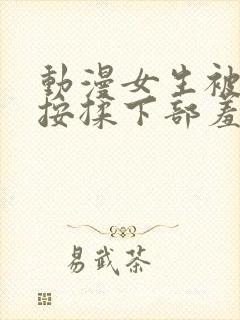 動漫女生被
按揉下部羞
易武茶